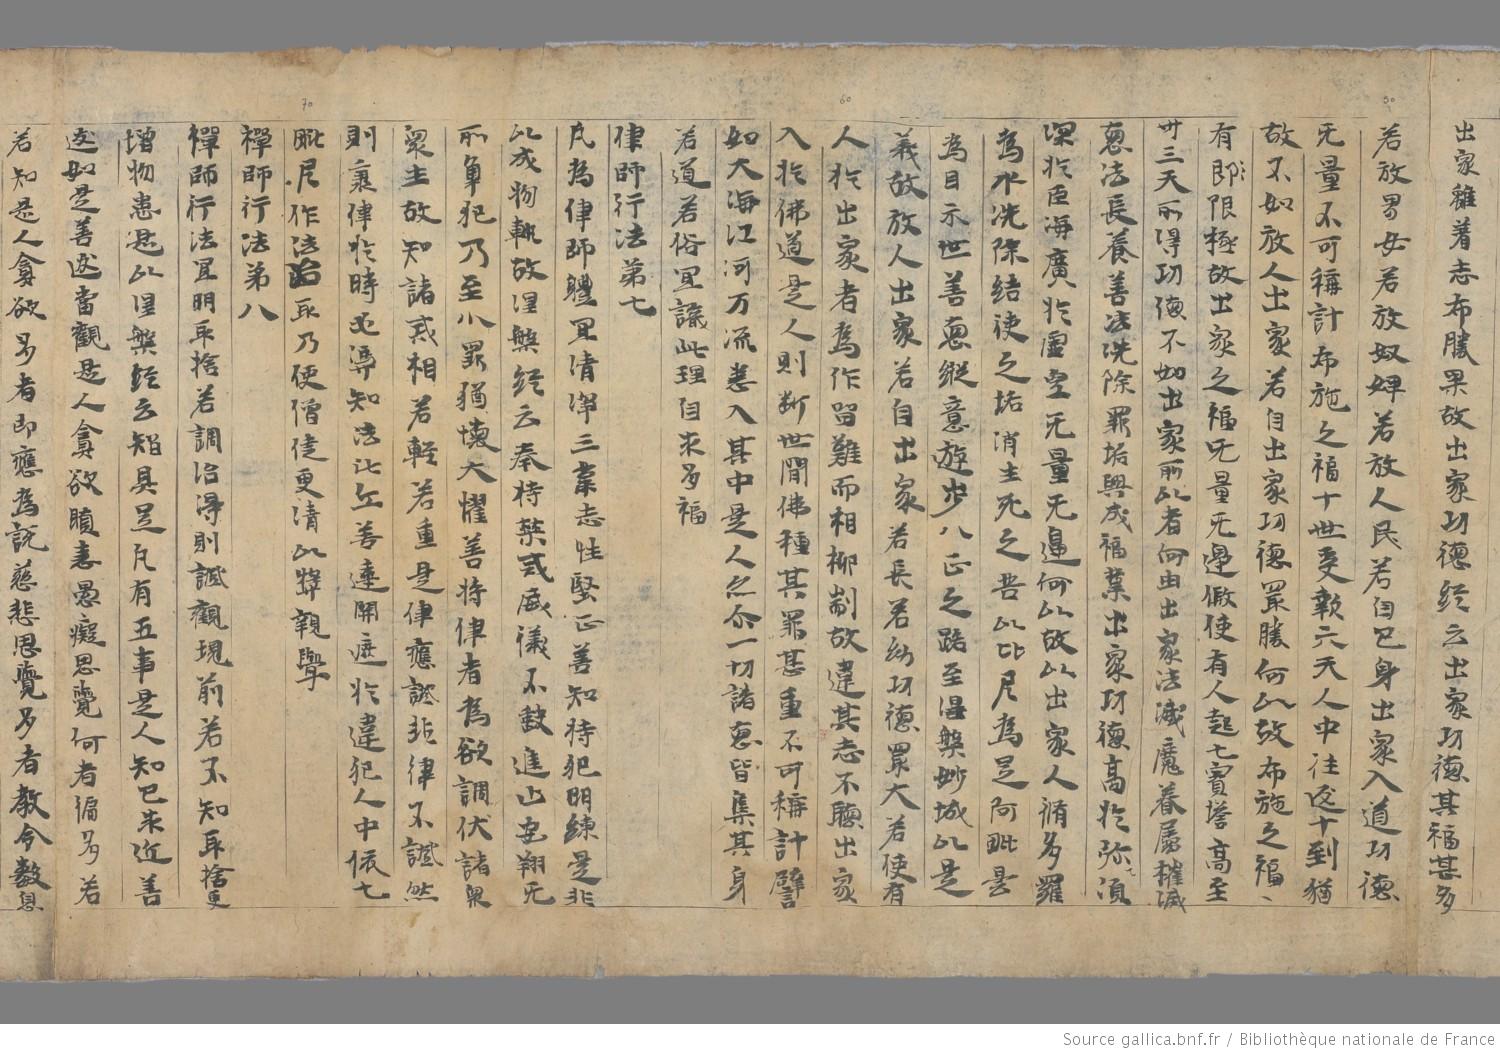 出家離著志布勝果故出家功德經云出家功德其福甚多
若放男女若放奴婢若放人民若自己身出家入道功德
无量不可稱計布施之福十世受六天人中往返十到猶
故不如放人出家若自出家功德冣勝何以故布施之福
有即限極故出家之福无量无邊假使有人起七寶塔高至
卅三天所得功德不如出家所以者何由出家法滅魔眷屬摧滅
惡法長養善法洗除罪垢興成福業出家功德高於弥湏
深於巨海廣於虛空无量无邊何以故以出家人脩多羅
為水洗除結使之垢消生死之苦以比尼為足阿毗曇
為目示世善惡縱意遊步八正之路至涅槃妙城以是
義故放人出家若自出家若長若幼功德冣大若使有
人於出家者為作留難而相抑制故違其志不聽出家
入於佛道是人則斷世間佛種其罪甚重不可稱計譬
如大海江河万流悉入其中是人亦尒一切諸惡皆集其身
若道若俗冝議此理自求多福
律師行法第七
凡為律師軆冝清潔三業志性堅正善知持犯明練是非
以成物軌故涅槃經云奉持禁戒威儀不缺進止安翔无
所犯乃至小罪猶懷大懼善持律者為欲調伏諸衆
衆生故知諸戒相若輕若重是律應證非律不證然
則裹律於時匡導知法訖在善達開遮於違犯人中依七
毗尼作法治取乃使僧徒更清以弊親學
禪師行法第八
禪師行法冝明取捨若調治得則證觀現前若不知取捨更
增物患是以涅槃經云智具足凡有五事是人知已求近善
送如是善送當觀是人貪欲瞋恚愚癡思覺何者偏多若
若知是人貪欲多者即應為說慈悲思覺多者教令數息